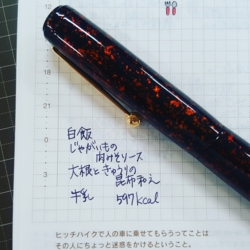 12
白飯
じゃがいもの
肉みそソース
大根ときゅうりの
昆布和え
牛乳 597kcal
3
6
9
ヒッチハイクで人の車に乗せてもらうってことは
その人にちょっと迷惑をかけるということ。